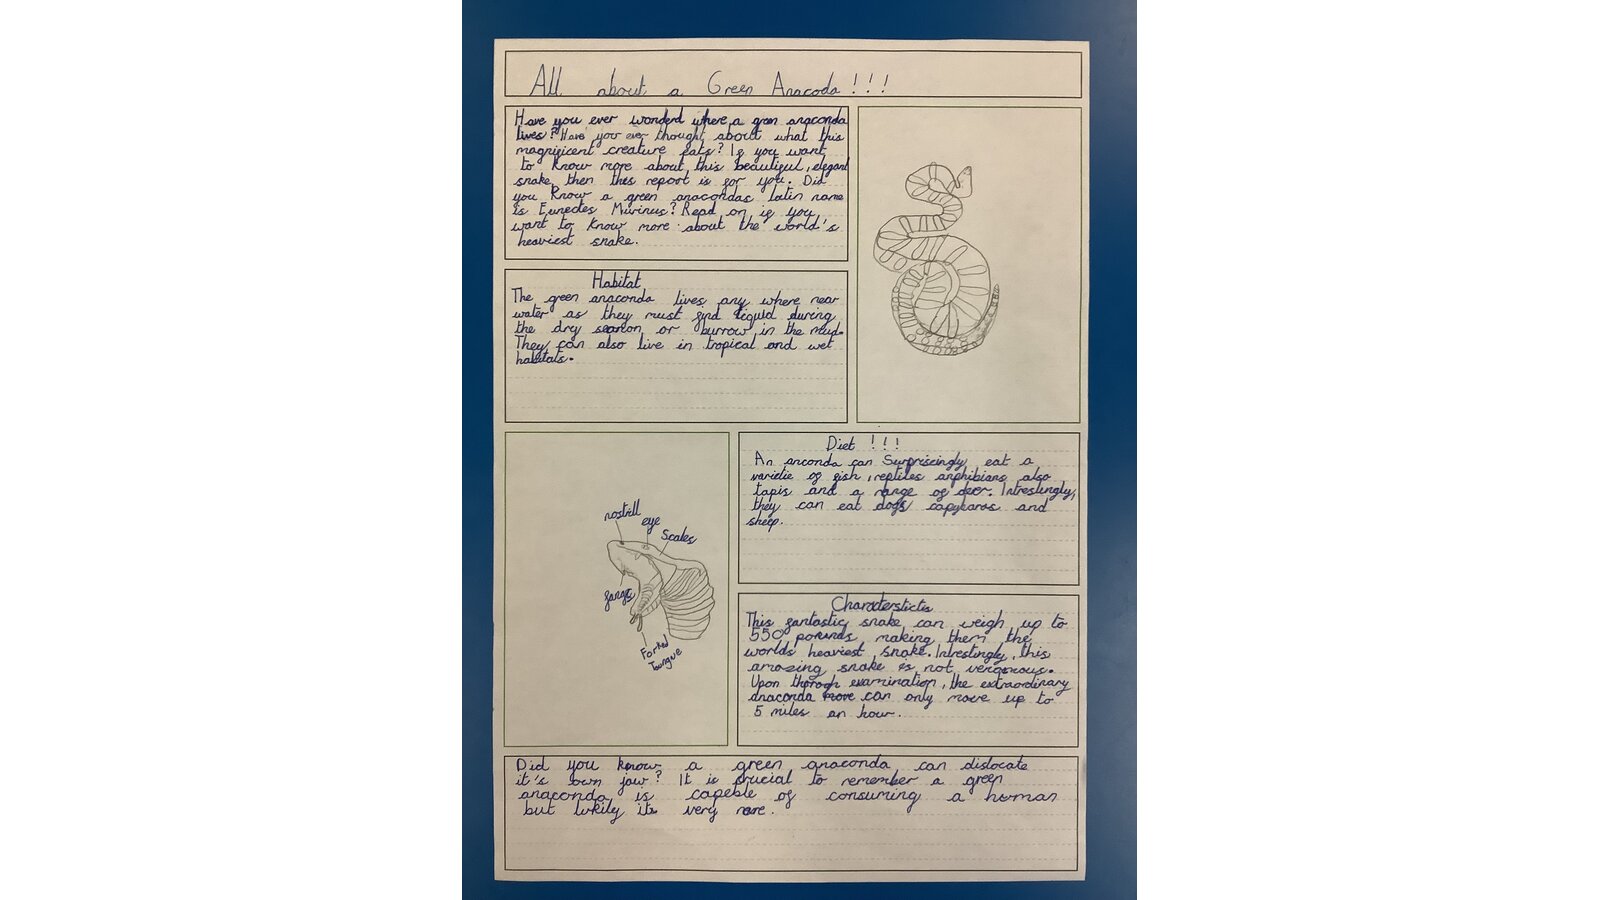 All about a Green Anacoda!!!
Have you ever wonderd where a green anaconda
lives? Have you ever thought about what this
magnificent creature eats? If you want
to know more about this beautiful, elegant
snake then this report is for you. Did
you know a green anacondas latin name
is Eunectes Murinus? Read on if you
want to know more about the world's
heaviest snake.
Habitat
The green anaconda lives any where near
water as they must find liquid during
the dry season or burrow in the mud.
They can also live in tropical and wet
habitats.
Diet !!!
An anconda can Surpriseingly eat a
varietie of fish, reptiles amphibians also
tapis and a range of deer. Intrestingly,
they can eat dogs capybaras and
sheep.
nostrill
eye
Scales
fangs
Forked
Toungue
Characterstictis
This fantastic snake can weigh up to
550 pounds making them the
worlds heaviest snake. Intrestingly, this
amazing snake is not vergomous.
Upon thorogh examination, the extraordinary
anaconda move can only move up to
5 miles an hour.
Did you know a green anaconda can dislocate
it's own jaw? It is crucial to remember a green
anaconda is capeble of consuming a human
but lukily its very rare.